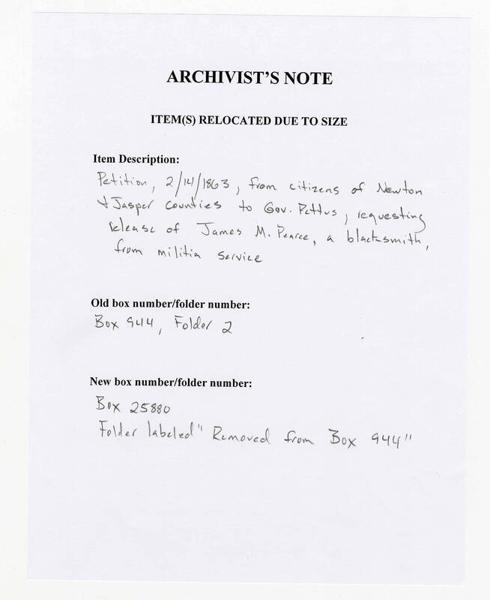 ARCHIVIST'S NOTE
ITEM(S) RELOCATED DUE TO SIZE
Item Description:
Petition, 2/14/1863, from citizens of Newton
+ Jasper counties to Gov. Pettus, requesting
release of James M. Pearce, a blacksmith,
from militia service
Old box number/folder number:
Box 944, Folder 2
New box number/folder number:
Box 25880
Folder labeled "Removed from Box 944"